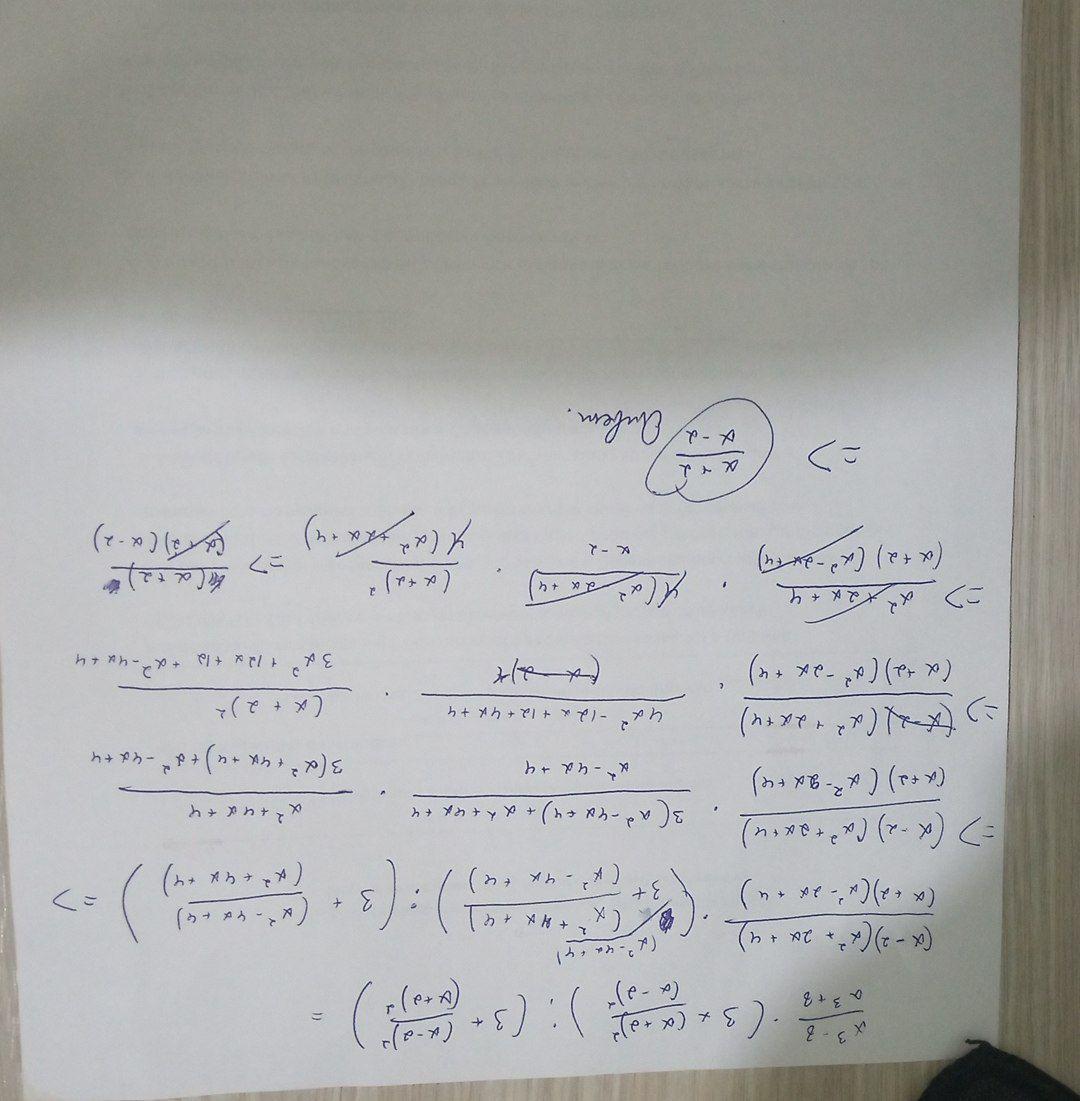 (x³ - 8)/(x³ + 8) · (3 + (x+2)²/(x-2)²) : (3 + (x-2)²/(x+2)²) =
(x-2)(x² + 2x + 4)/(x+2)(x² - 2x + 4) · (3 + (x² + 4x + 4)/(x² - 4x + 4)) : (3 + (x² - 4x + 4)/(x² + 4x + 4)) =>
=> (x-2)(x² + 2x + 4)/(x+2)(x² - 2x + 4) · 3(x² - 4x + 4) + x² + 4x + 4/x² - 4x + 4 · x² + 4x + 4/3(x² + 4x + 4) + x² - 4x + 4
=> (x-2)(x² + 2x + 4)/(x+2)(x² - 2x + 4) · 4x² - 12x + 12 + 4x + 4/(x - 2)² · (x + 2)²/3x² + 12x + 12 + x² - 4x + 4
=> x² + 2x + 4/(x+2)(x² - 2x + 4) · 4(x² - 2x + 4)/x - 2 · (x+2)²/4(x² + 2x + 4) => (x+2)²/(x+2)(x-2)
=> (x + 2)/(x - 2) Ответ.